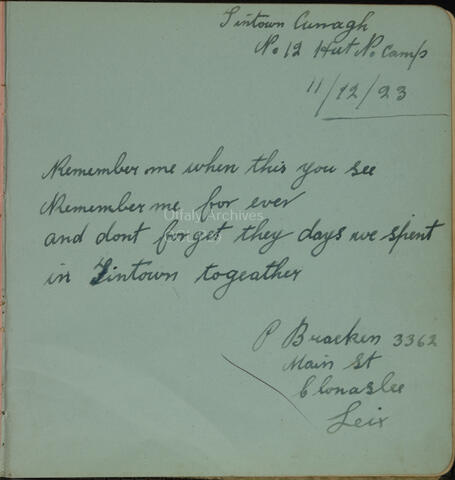 Tintown Curragh
No 12 Hut No Camp
11/12/23
Remember me when this you see
Remember me for ever
Offaly Archives
and dont forget they days we spent
in Tintown togeather
P Bracken 3362
Main St
Clonaslee
Leix